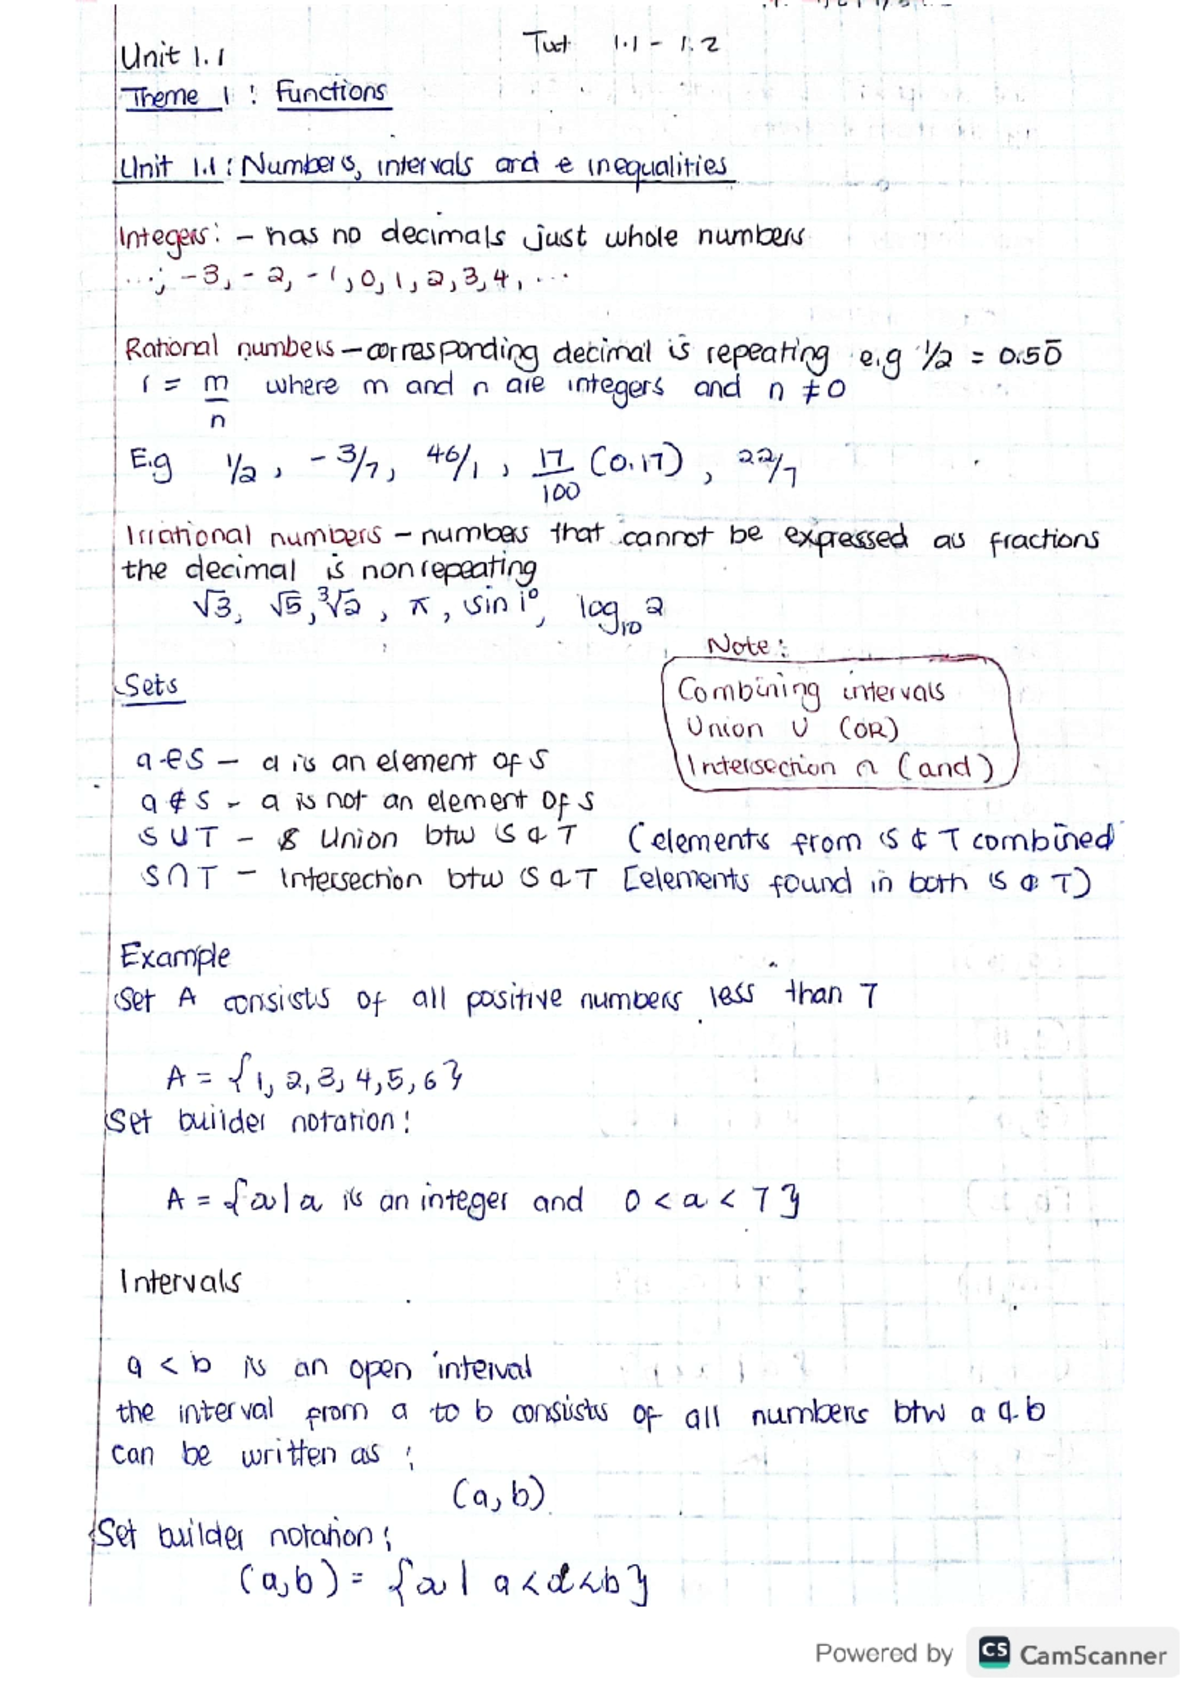 Unit 1.1
Tut 1.1 - 1.2
Theme 1 : Functions
Unit 1.1 : Numbers, intervals and e inequalities
Integers: - has no decimals just whole numbers
...; -3, -2, -1, 0, 1, 2, 3, 4, ...
Rational numbers - corresponding decimal is repeating e.g 1/2 = 0.50̅
r = m/n where m and n are integers and n ≠ 0
E.g 1/2, -3/7, 46/1, 17/100 (0.17), 22/7
Irrational numbers - numbers that cannot be expressed as fractions
the decimal is nonrepeating
√3, √5, ³√2, π, sin 1°, log₁₀ 2
Note:
Sets
Combining intervals
Union ∪ (OR)
Intersection ∩ (and)
a ∈ S - a is an element of S
a ∉ S - a is not an element of S
S ∪ T - Union btw S & T (elements from S & T combined
S ∩ T - Intersection btw S & T [elements found in both S & T)
Example
Set A consists of all positive numbers less than 7
A = {1, 2, 3, 4, 5, 6}
Set builder notation:
A = {x | x is an integer and 0 < x < 7}
Intervals
a < b is an open interval
the interval from a to b consists of all numbers btw a & b
can be written as :
(a, b)
Set builder notation:
(a, b) = {x | a < x < b}
Powered by CS CamScanner